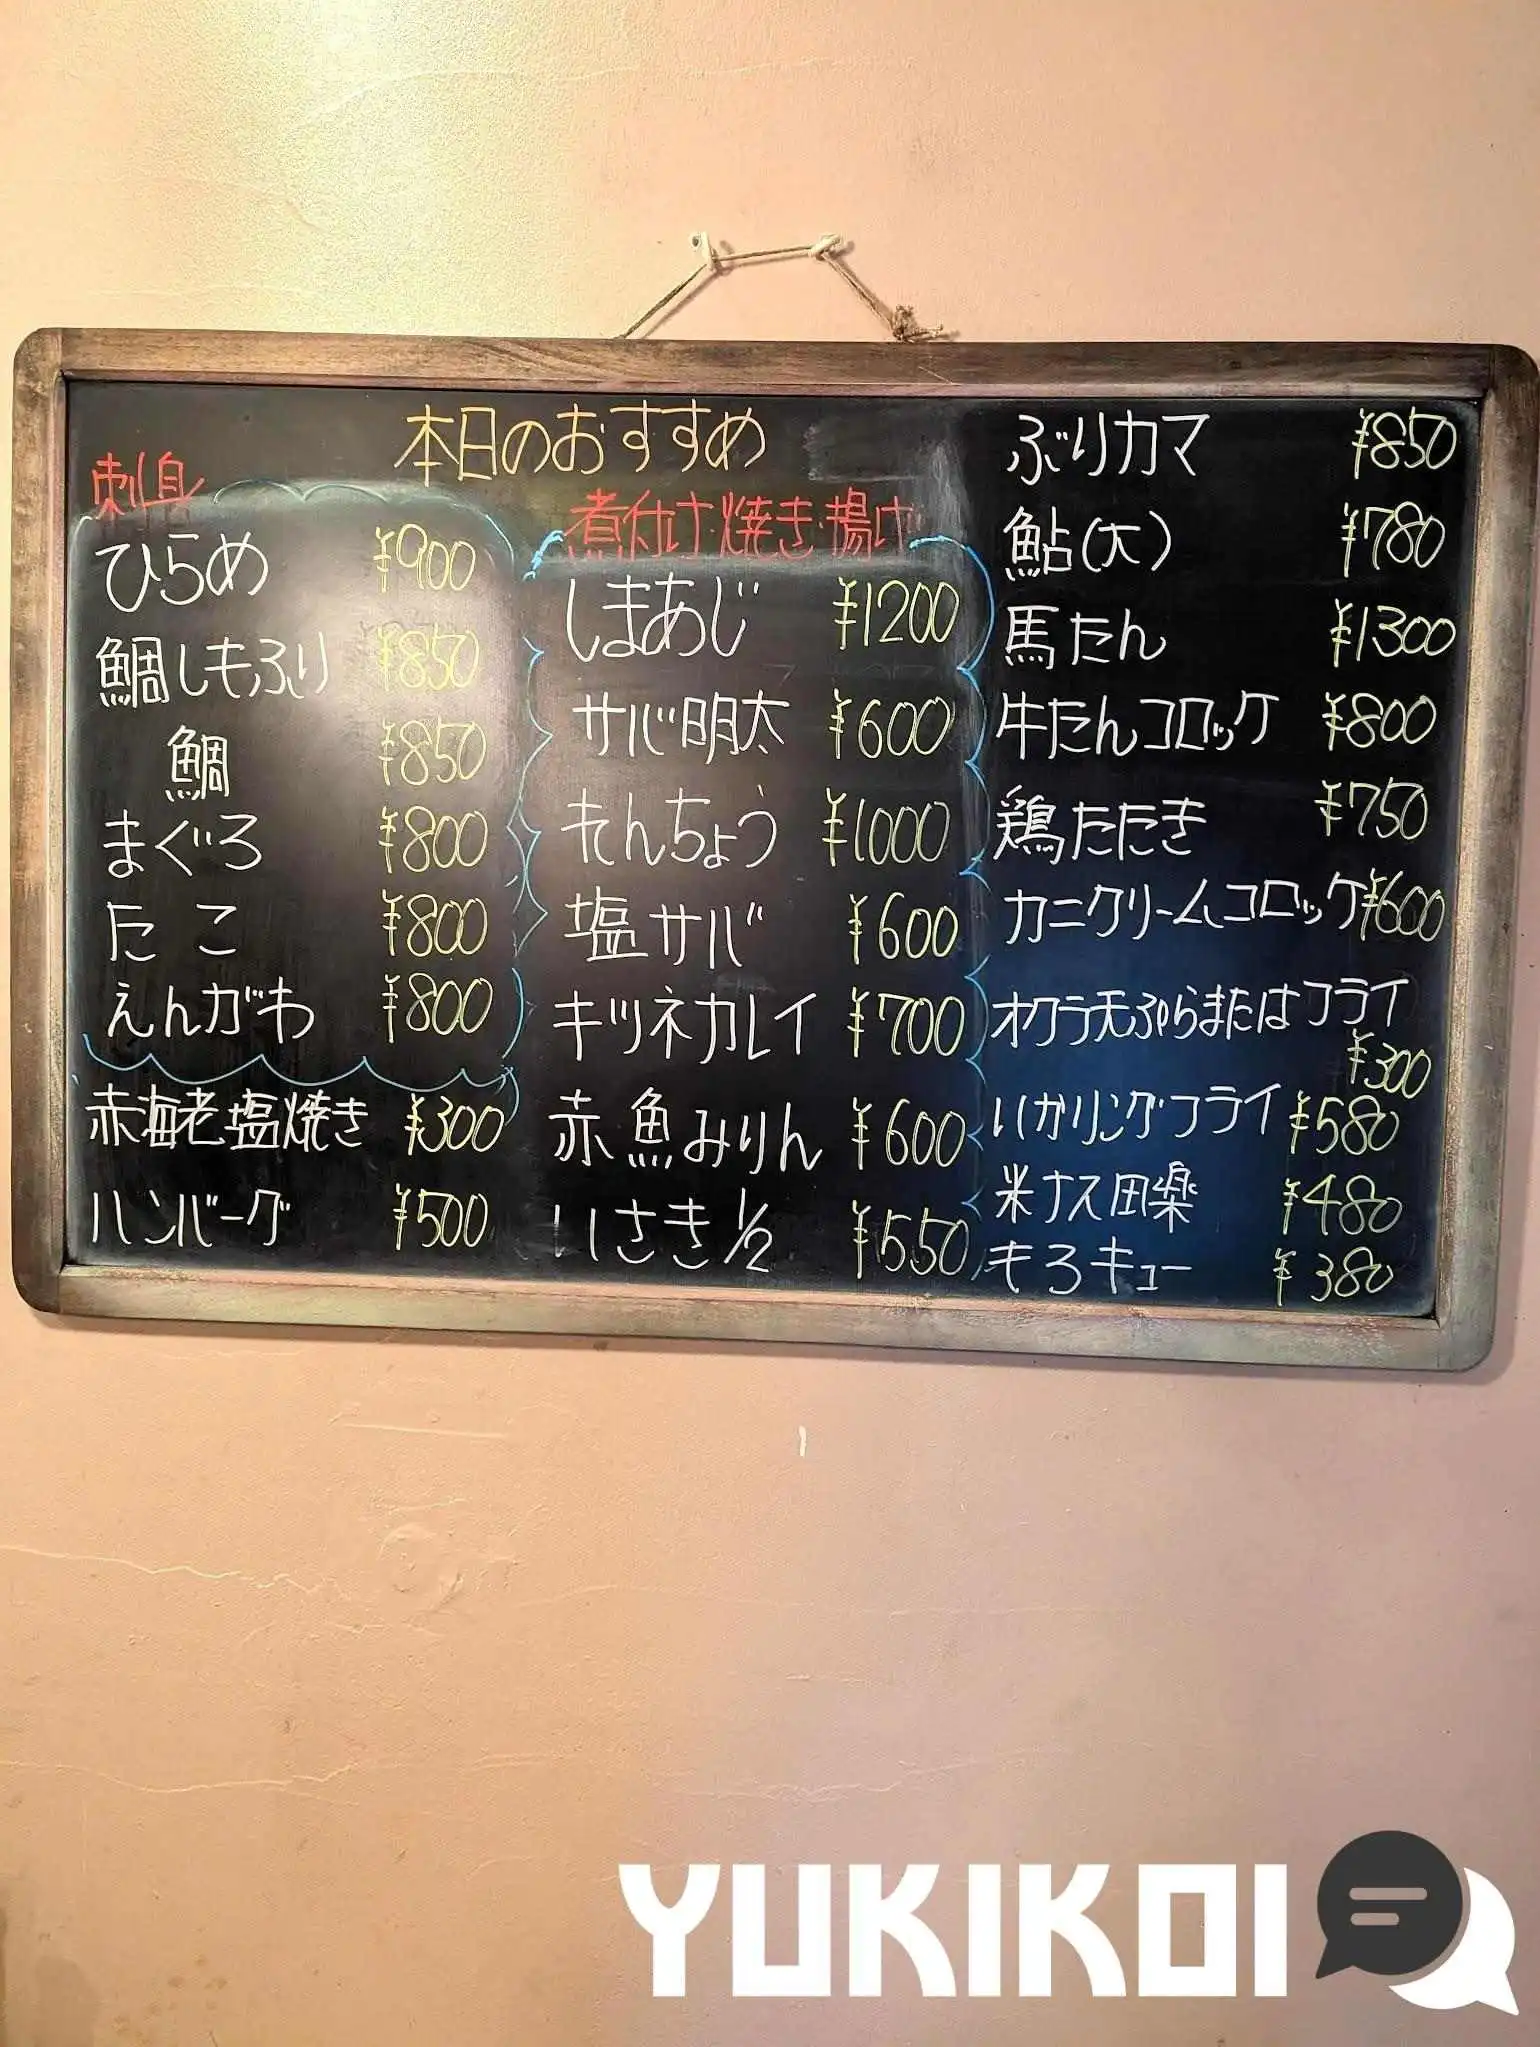 本日のおすすめ
刺身
ひらめ ¥900
鯛しもふり ¥850
鯛 ¥850
まぐろ ¥800
たこ ¥800
えんがわ ¥800
赤海老塩焼き ¥300
ハンバーグ ¥500
煮付け・焼き・揚げ
しまあじ ¥1200
サバ明太 ¥600
もんちょう ¥1000
塩サバ ¥600
キツネカレイ ¥700
赤魚みりん ¥600
いさき1/2 ¥550
ぶりカマ ¥850
鮎(大) ¥780
馬たん ¥1300
牛たんコロッケ ¥800
鶏たたき ¥750
カニクリームコロッケ ¥600
オクラ天ぷらまたはフライ
¥300
いかリングフライ ¥580
米ナス田楽 ¥480
もろキュー ¥380
YUKIKOI